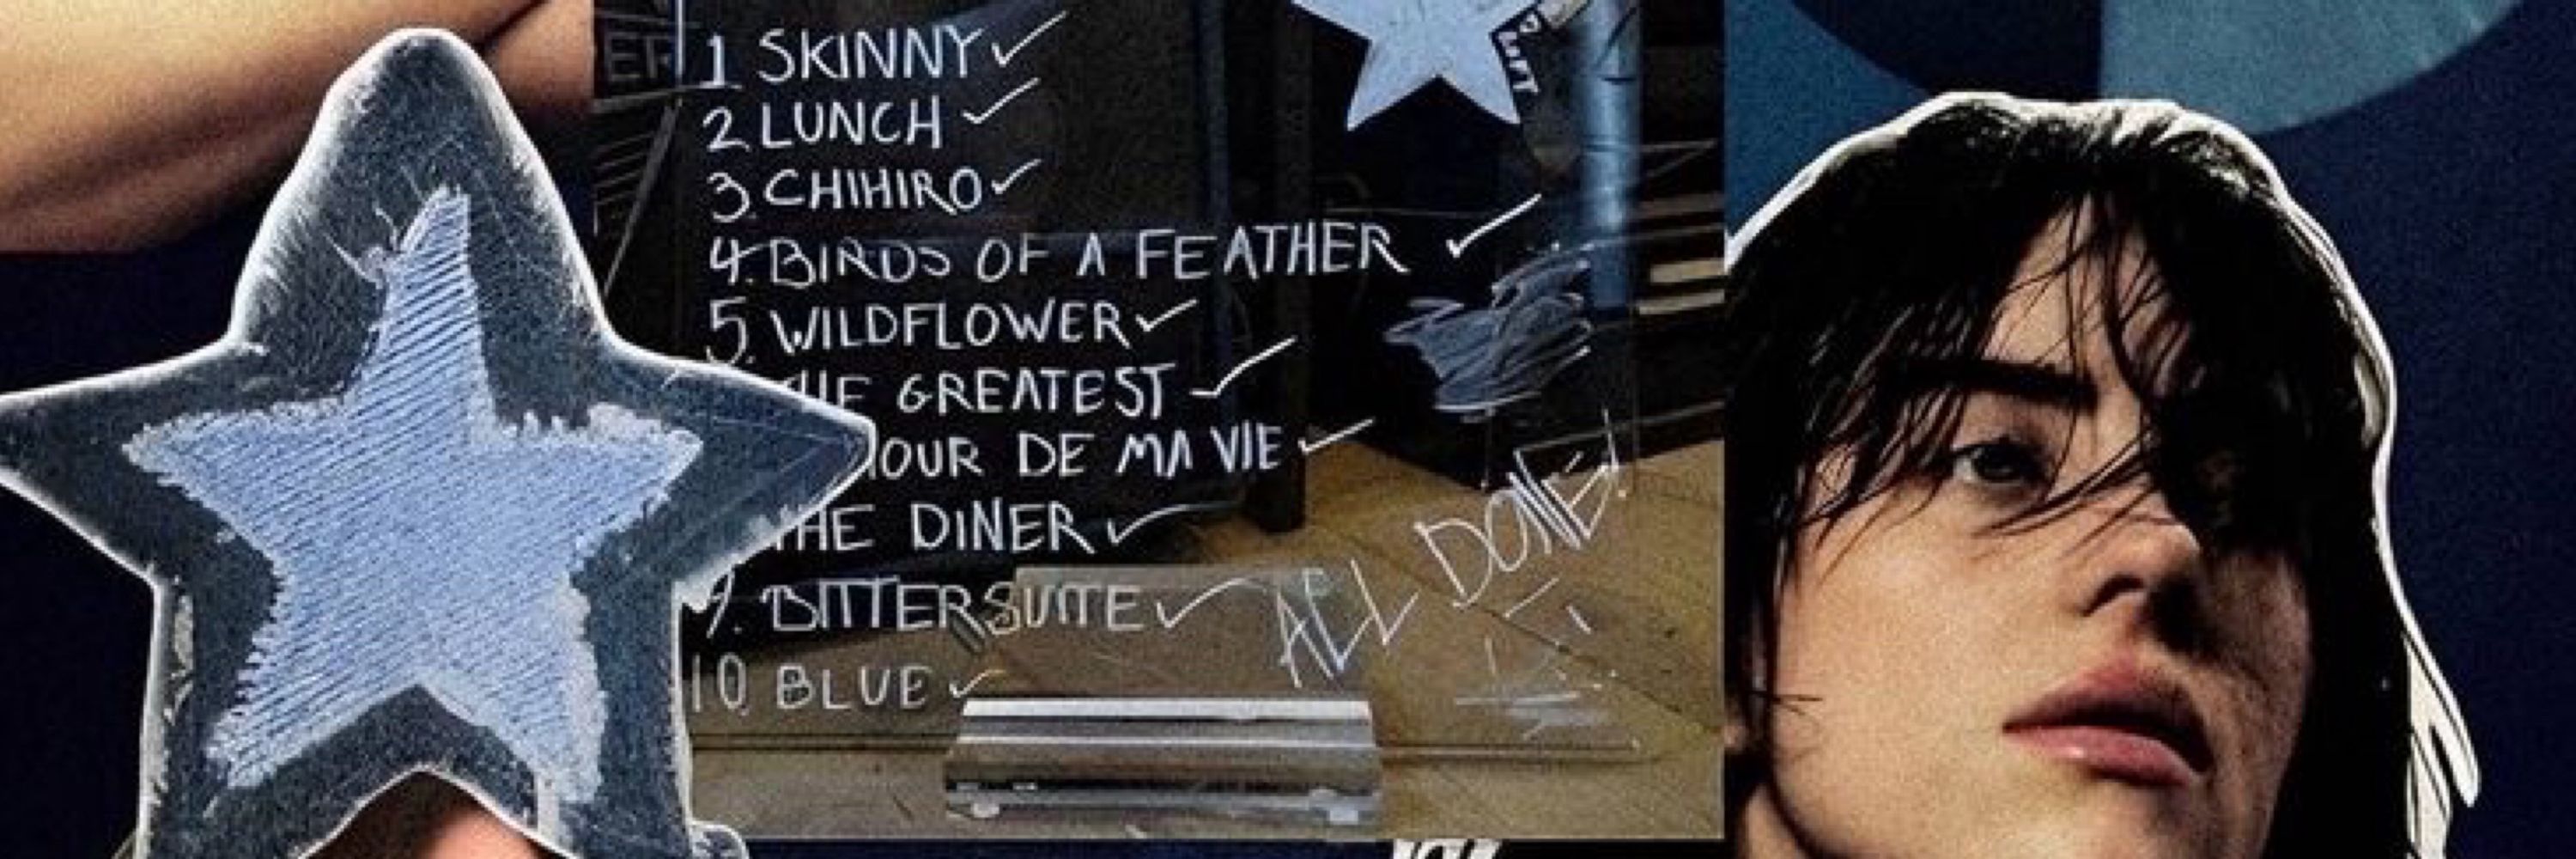 ER
1 SKINNY ✓
2 LUNCH ✓
3. CHIHIRO ✓
4. BIRDS OF A FEATHER ✓
5. WILDFLOWER ✓
HE GREATEST ✓
OUR DE MA VIE ✓
THE DINER ✓
9. BITTERSUITE ✓
10 BLUE ✓
ALL DONE!